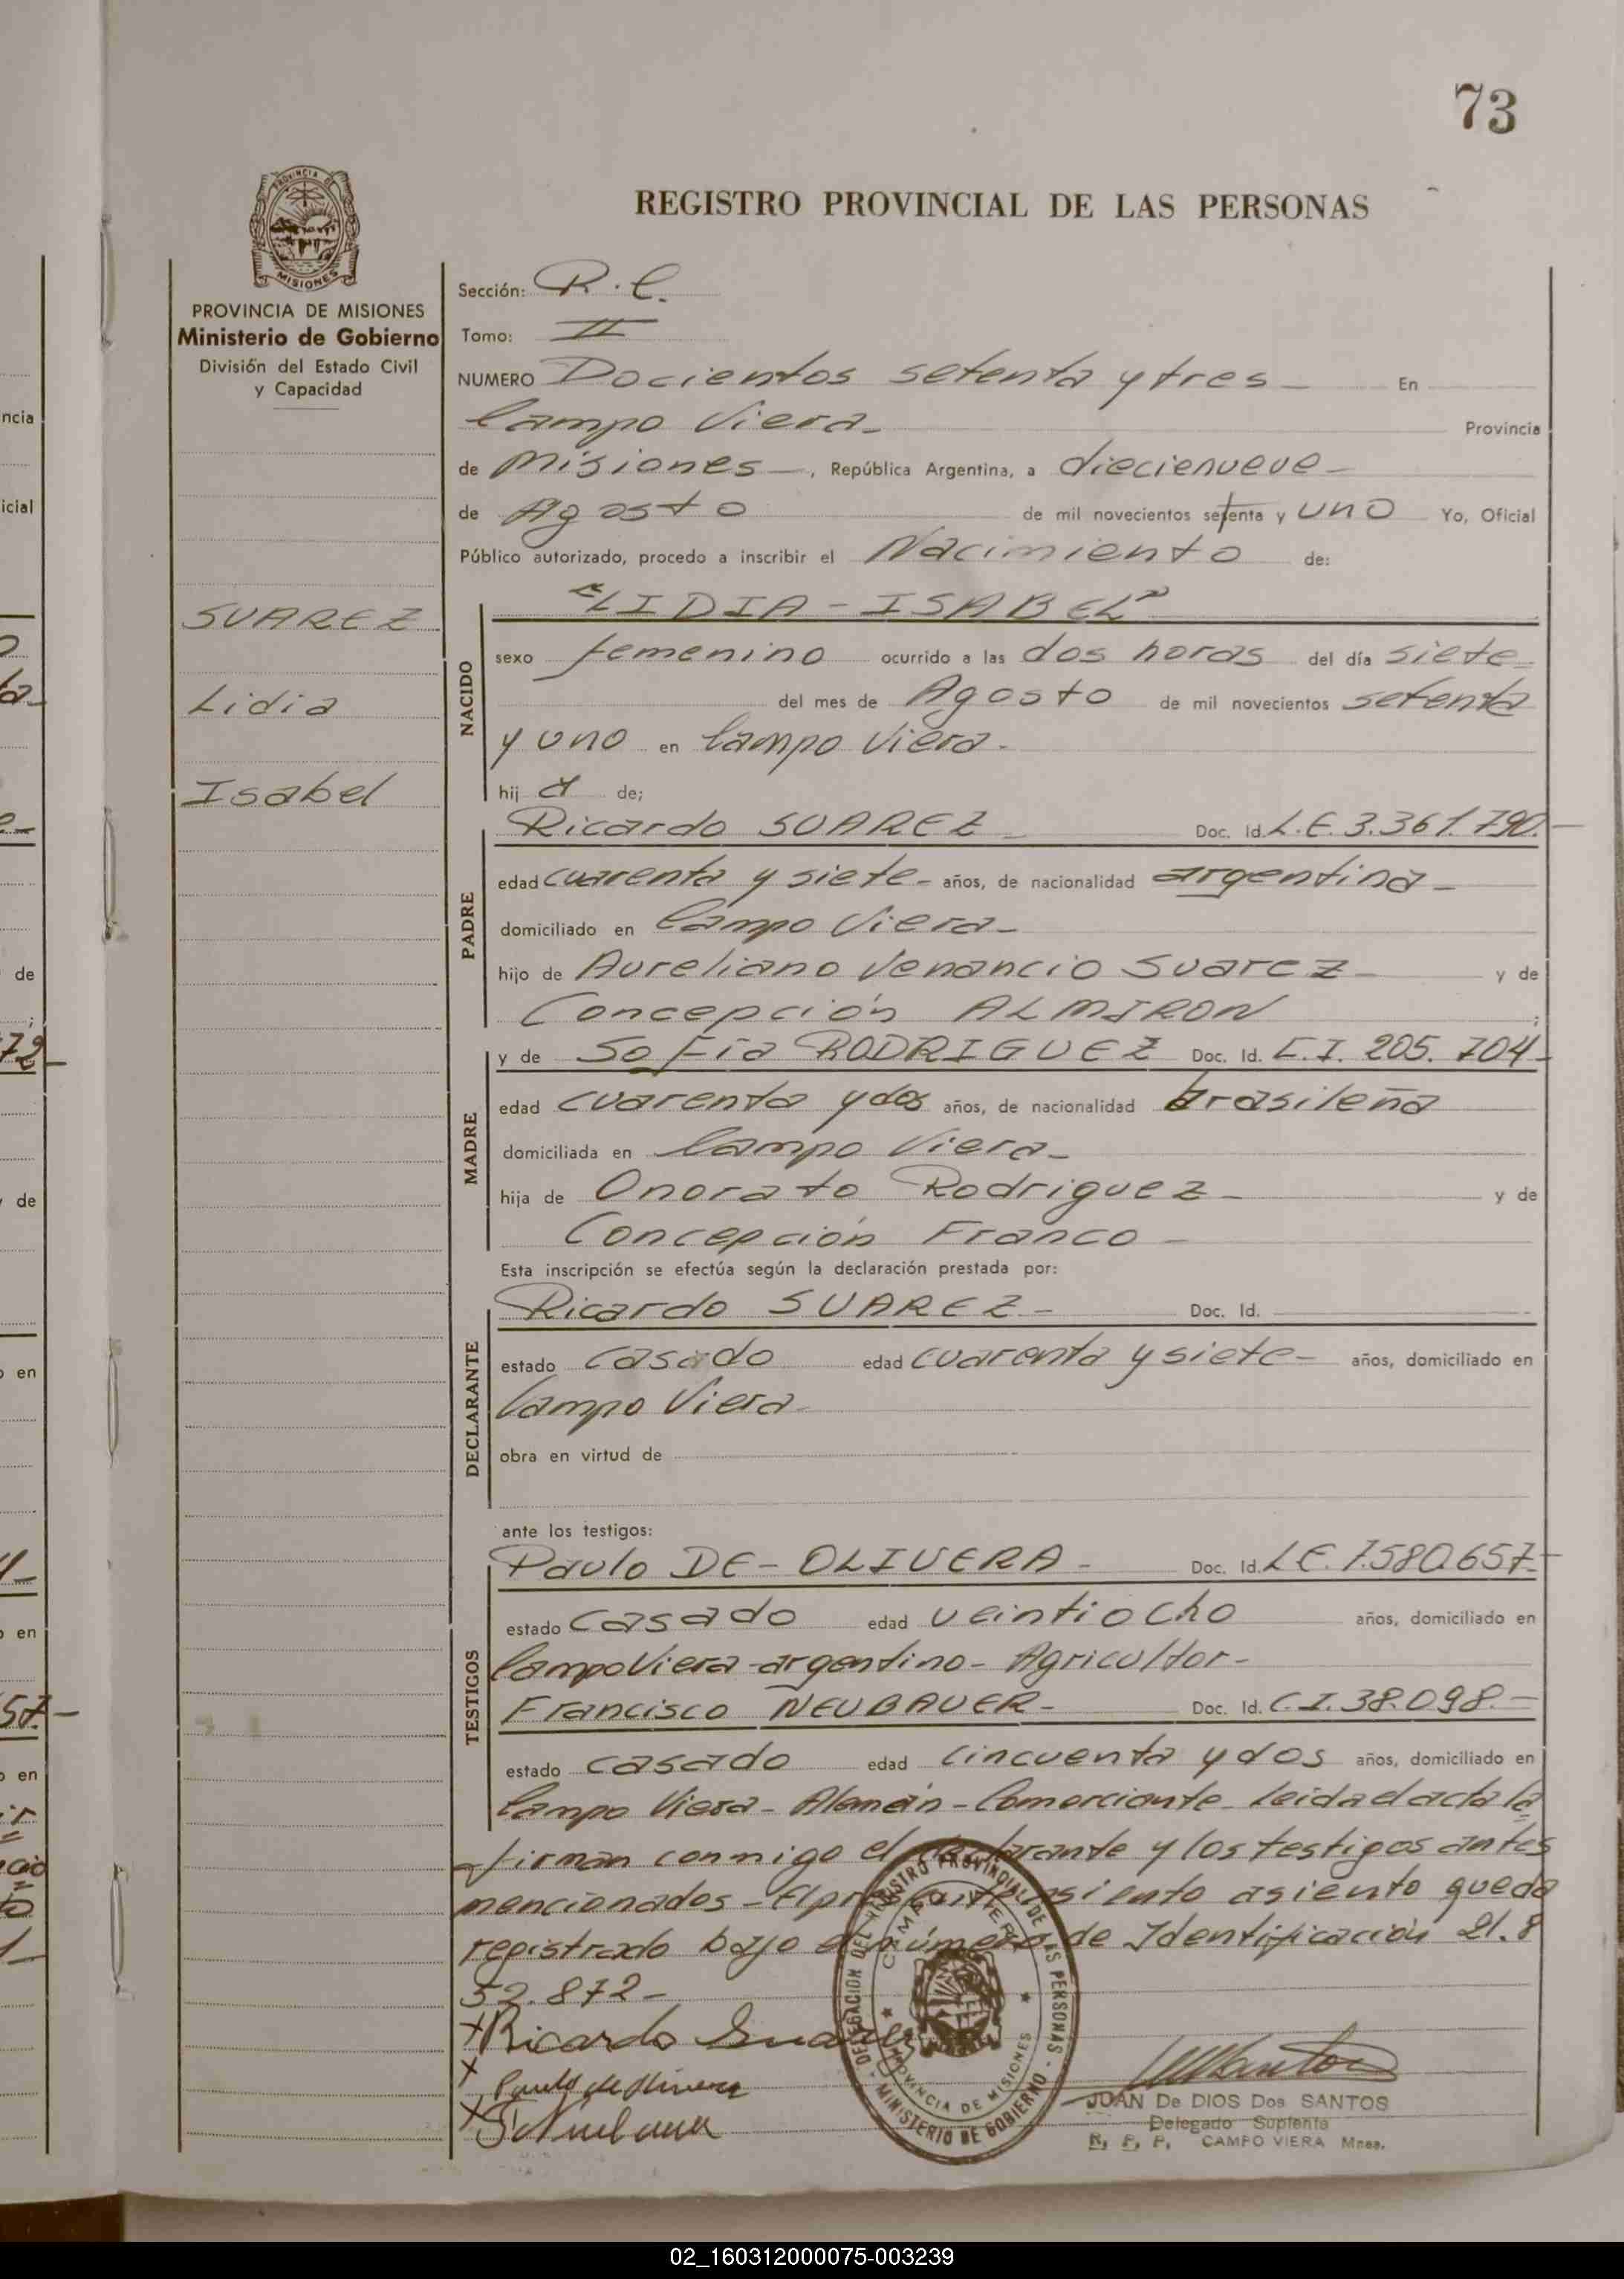 73
REGISTRO PROVINCIAL DE LAS PERSONAS
PROVINCIA DE MISIONES
Ministerio de Gobierno
División del Estado Civil
y Capacidad
SUAREZ
Lidia
Isabel
Sección: R.C.
Tomo: II
NUMERO Docientos setenta y tres - En
Campo Viera - Provincia
de Misiones -, República Argentina, a diecienueve -
de Agosto de mil novecientos setenta y uno Yo, Oficial
Público autorizado, procedo a inscribir el Nacimiento de:
"LIDIA - ISABEL"
NACIDO
sexo femenino ocurrido a las dos horas del día siete -
del mes de Agosto de mil novecientos setenta
y uno en Campo Viera -
hij a de;
PADRE
Ricardo SUAREZ - Doc. Id. L.E. 3.361.790.-
edad cuarenta y siete - años, de nacionalidad argentina -
domiciliado en Campo Viera -
hijo de Aureliano Venancio Suarez - y de
Concepción ALMIRON ;
MADRE
y de Sofía RODRIGUEZ Doc. Id. C.I. 205.704 -
edad cuarenta y dos años, de nacionalidad brasileña
domiciliada en Campo Viera -
hija de Onorato Rodriguez - y de
Concepción Franco -
Esta inscripción se efectúa según la declaración prestada por:
DECLARANTE
Ricardo SUAREZ - Doc. Id.
estado casado edad cuarenta y siete - años, domiciliado en
Campo Viera -
obra en virtud de
ante los testigos:
TESTIGOS
Paulo DE - OLIVERA - Doc. Id. L.E. 7.580.657 -
estado casado edad veintiocho años, domiciliado en
Campo Viera - argentino - Agricultor -
Francisco NEUBAUER - Doc. Id. C.I. 38.098. -
estado casado edad cincuenta y dos años, domiciliado en
Campo Viera - Alemán - Comerciante - Leida el acta la
firman conmigo el declarante y los testigos antes
mencionados - El presente asiento asiento queda
registrado bajo el número de Identificación 21.8
52.872 -
x Ricardo Suarez
x Paulo de Olivera
x F Neubauer
DELEGACION DEL REGISTRO PROVINCIAL DE LAS PERSONAS - MINISTERIO DE GOBIERNO -
CAMPO VIERA
PROVINCIA DE MISIONES
JUAN De DIOS Dos SANTOS
Delegado Suplente
R. P. P. CAMPO VIERA Mnes.
ncia
icial
de
72 -
y de
o en
o en
57. -
o en
02_160312000075-003239